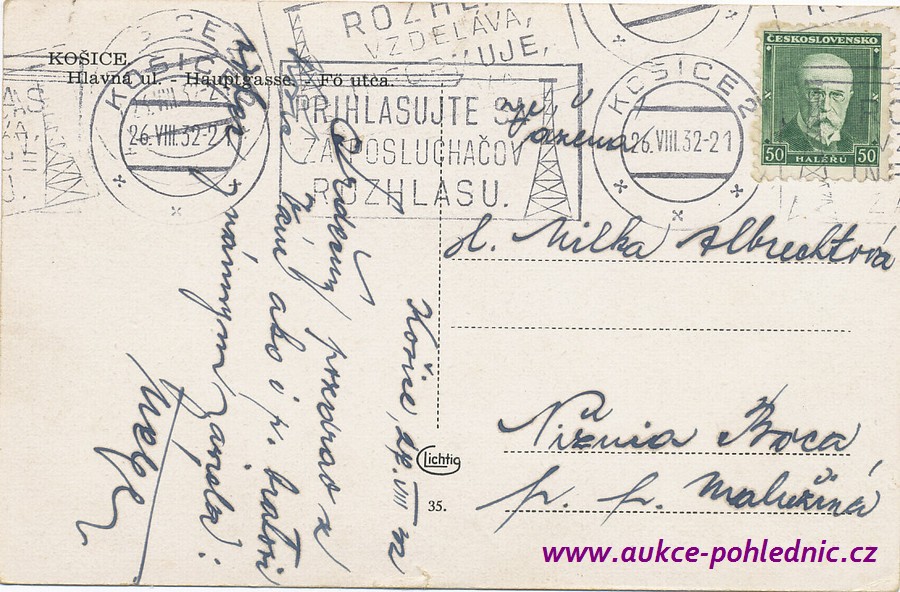 KOŠICE.
Hlavná ul. - Hauptgasse. - Fö utca.
ROZHL
VZDELÁVA,
UJE,
PRIHLASUJTE SA
ZA POSLUCHAČOV
ROZHLASU.
KOŠICE 2
26.VIII.32-21
KOŠICE 2
26.VIII.32-21
ČESKOSLOVENSKO
50 HALÉŘŮ 50
Vážená
sl. Milka Albrechtová
Nižnia Boca
p. p. Malužiná
Košice, VIII 32
Srdečný pozdrav z
Vám ako i p. bratovi
známym zasiela:
Lichtig
35.
www.aukce-pohlednic.cz